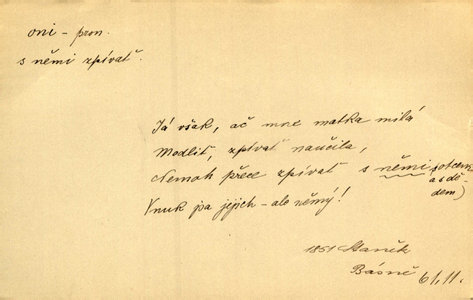 oni - pron.
s němi zpívať.
Já však, ač mne matka milá
Modlit, zpívať naučila,
Nemoh přece zpívať s němi (otcem
a s dě
dem)
Vnuk jsa jejich - ale němý!
1851 Staněk
Básně 61,11.